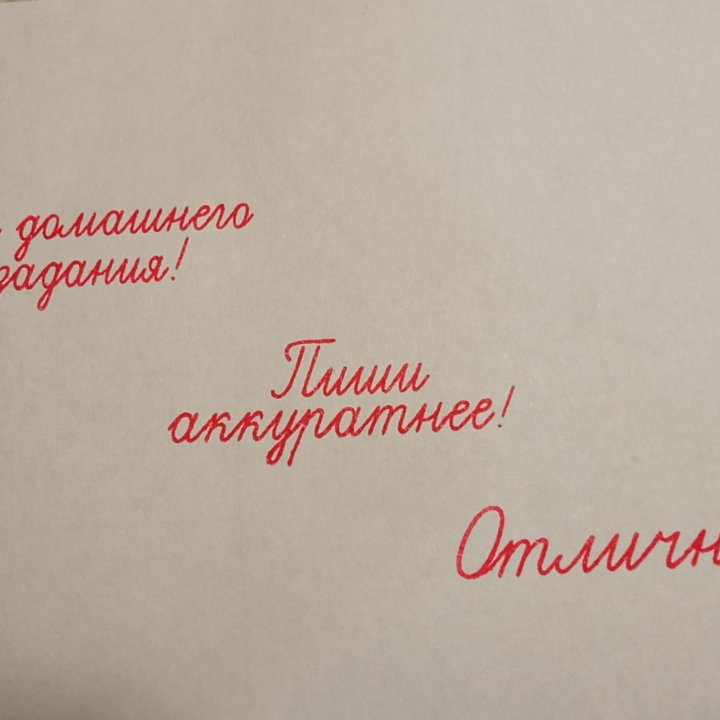 домашнего
задания!
Пиши
аккуратнее!